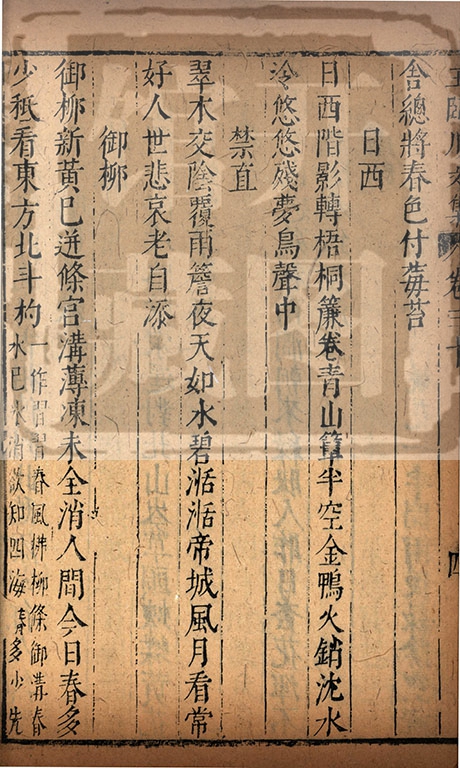 舍總將春色付莓苔
日西
日西階影轉梧桐簾卷青山簟半空金鴨火銷沈水
冷悠悠殘夢鳥聲中
禁直
翠木交陰覆兩簷夜天如水碧湉湉帝城風月看常
好人世悲哀老自添
御柳
御柳新黃已迸條宮溝薄凍未全消人間今日春多
少秪看東方北斗杓一作習習春風拂柳條御溝春
水已冰消欲知四海春多少先